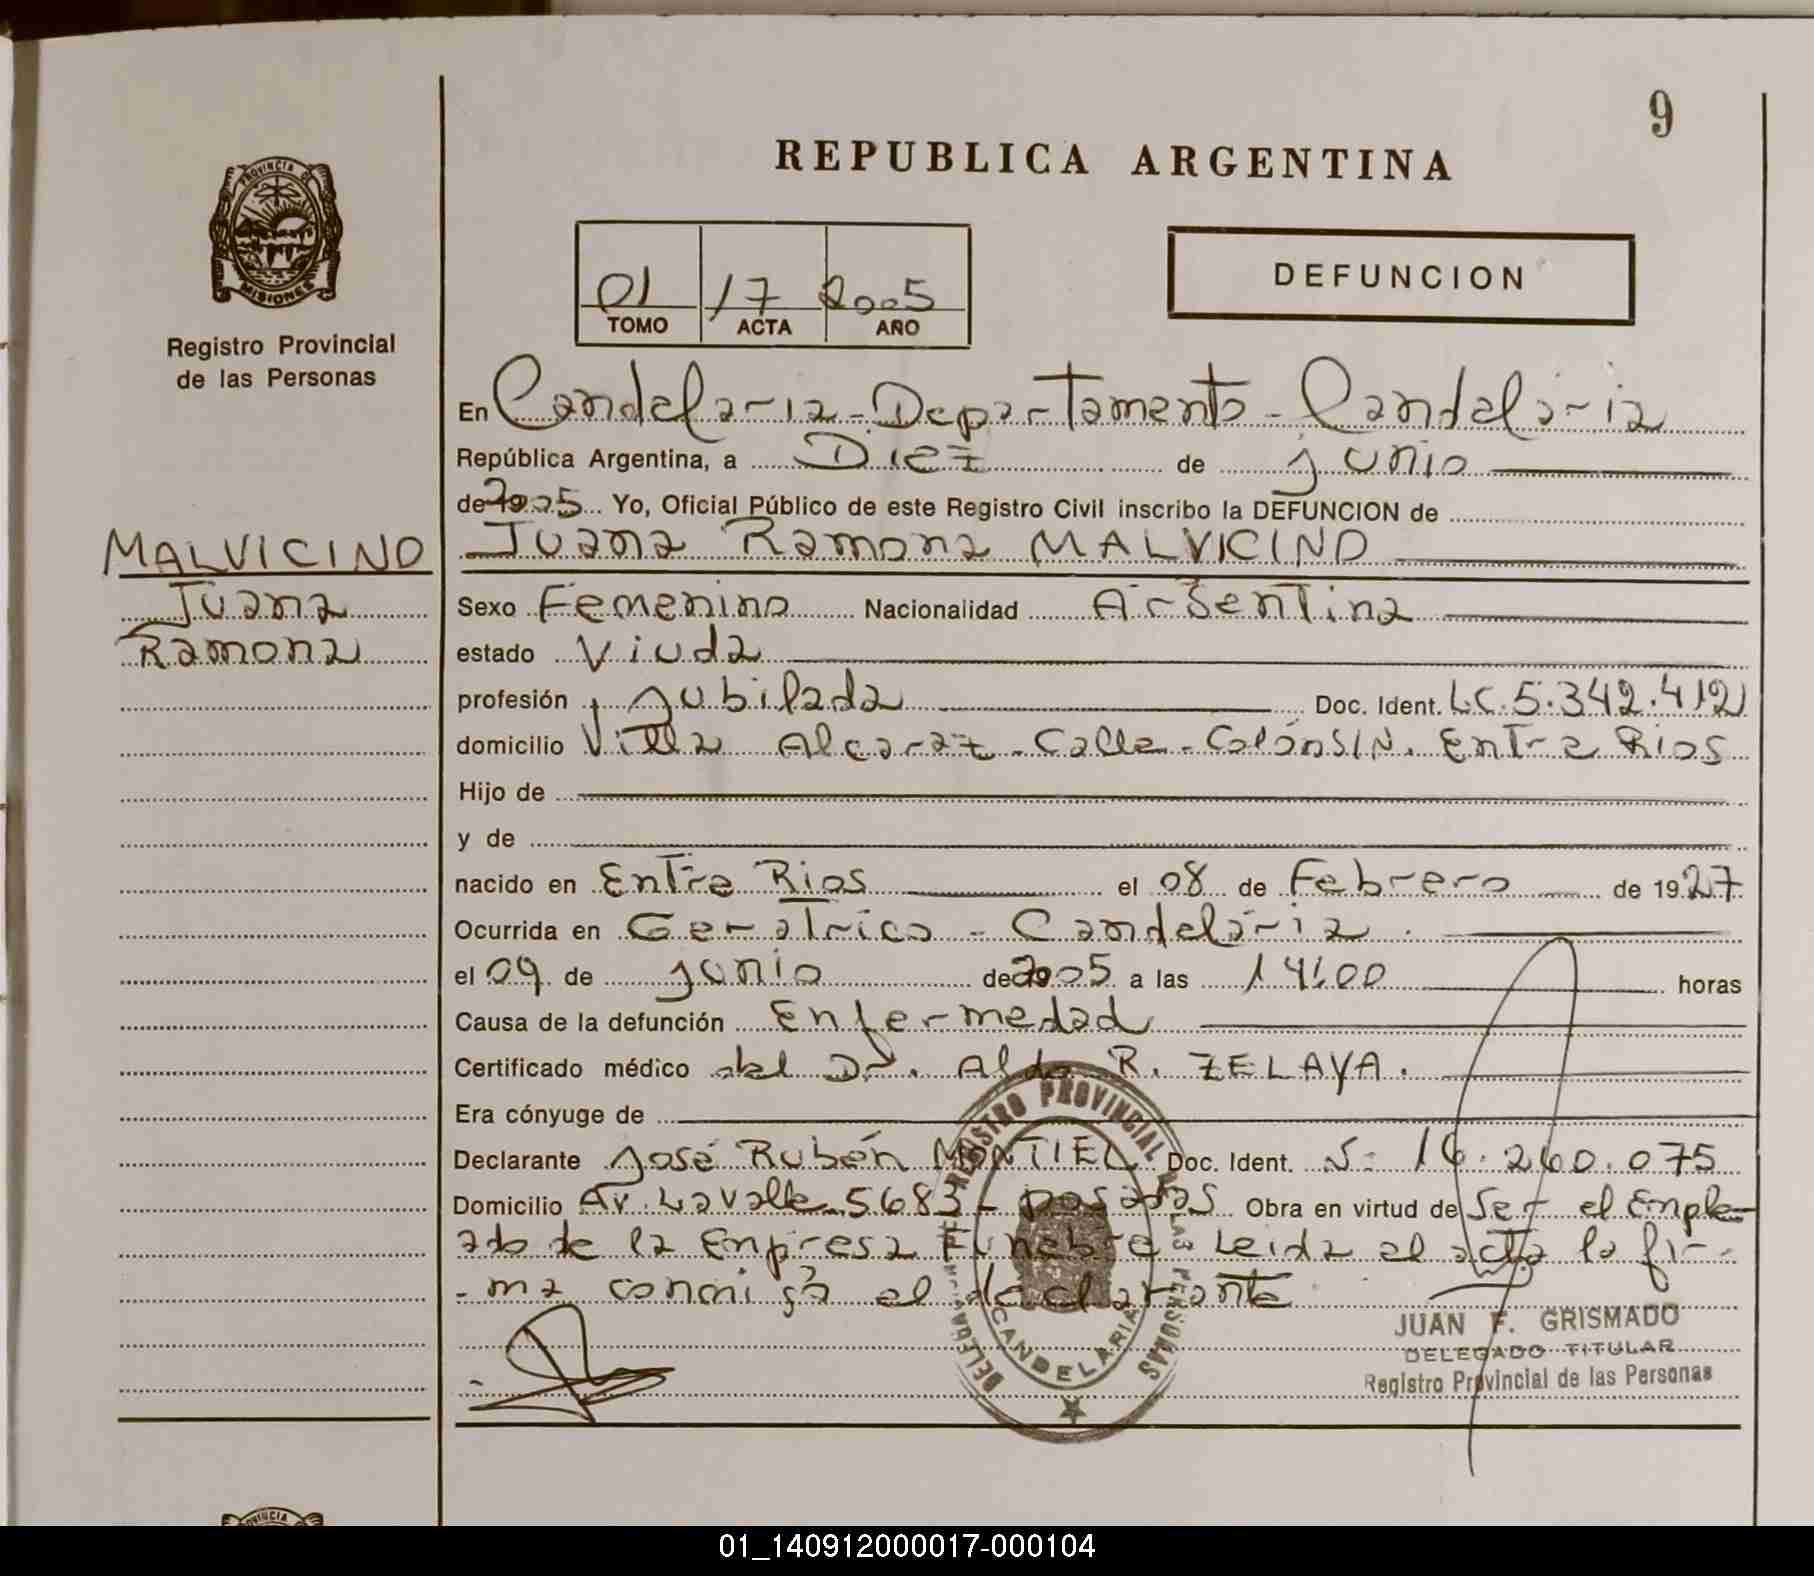 9
REPUBLICA ARGENTINA
PROVINCIA DE
MISIONES
Registro Provincial
de las Personas
01 17 2005
TOMO ACTA AÑO
DEFUNCION
En Candelaria - Departamento - Candelaria
República Argentina, a Diez de junio
de 2005 Yo, Oficial Público de este Registro Civil inscribo la DEFUNCION de
MALVICINO
Juana
Ramona
Juana Ramona MALVICINO
Sexo Femenino Nacionalidad Argentina
estado Viuda
profesión jubilada Doc. Ident. L.C. 5.342.412
domicilio Villa Alcaraz - Calle - Colón S/N. Entre Rios
Hijo de
y de
nacido en Entre Rios el 08 de Febrero de 1927
Ocurrida en Geratrico - Candelaria.
el 09 de junio de 2005 a las 14:00 horas
Causa de la defunción Enfermedad
Certificado médico del Dr. Aldo R. ZELAYA.
Era cónyuge de
Declarante José Rubén MONTIEL Doc. Ident. 16.260.075
Domicilio Av. Lavalle 5683 - posadas Obra en virtud de Ser el Emple-
ado de la Empresa Funebre Leida el acta la fir-
-ma conmigo el declarante
REGISTRO PROVINCIAL DE LAS PERSONAS
DELEGACION
CANDELARIA
JUAN F. GRISMADO
DELEGADO TITULAR
Registro Provincial de las Personas
PROVINCIA
01_140912000017-000104